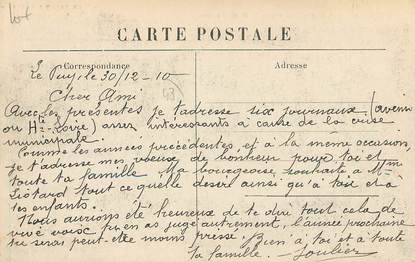 lot
CARTE POSTALE
Correspondance
Adresse
Le Puy, le 30/12-10
Cher Ami
Avec les présentes je t'adresse six journaux (avenir
ou Hte-Loire) assez intéressants à cause de la crise
municipale.
Comme les années précédentes, et à la même occasion,
je t'adresse mes voeux de bonheur pour toi et
toute ta famille. Ma bourgeoise souhaite à Mme
Liotard tout ce qu'elle desire ainsi qu'à toi et à
tes enfants.
Nous aurions été heureux de te dire tout cela de
vive voix tu en as jugé autrement, l'année prochaine
tu seras peut-être moins pressé. Bien à toi et à toute
ta famille. Soulier